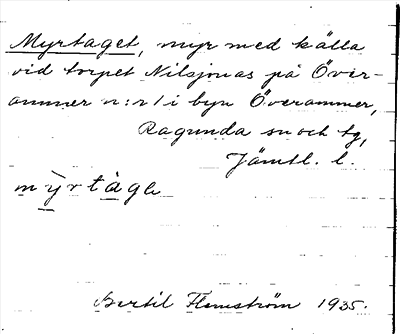 Myrtaget, myr med källa
vid torpet Nilsjonas på Över-
ammer n:r 1 i byn Överammer,
Ragunda sn och tg,
Jämtl. l.
mỳrtàgẹ
Bertil Flemström 1935.